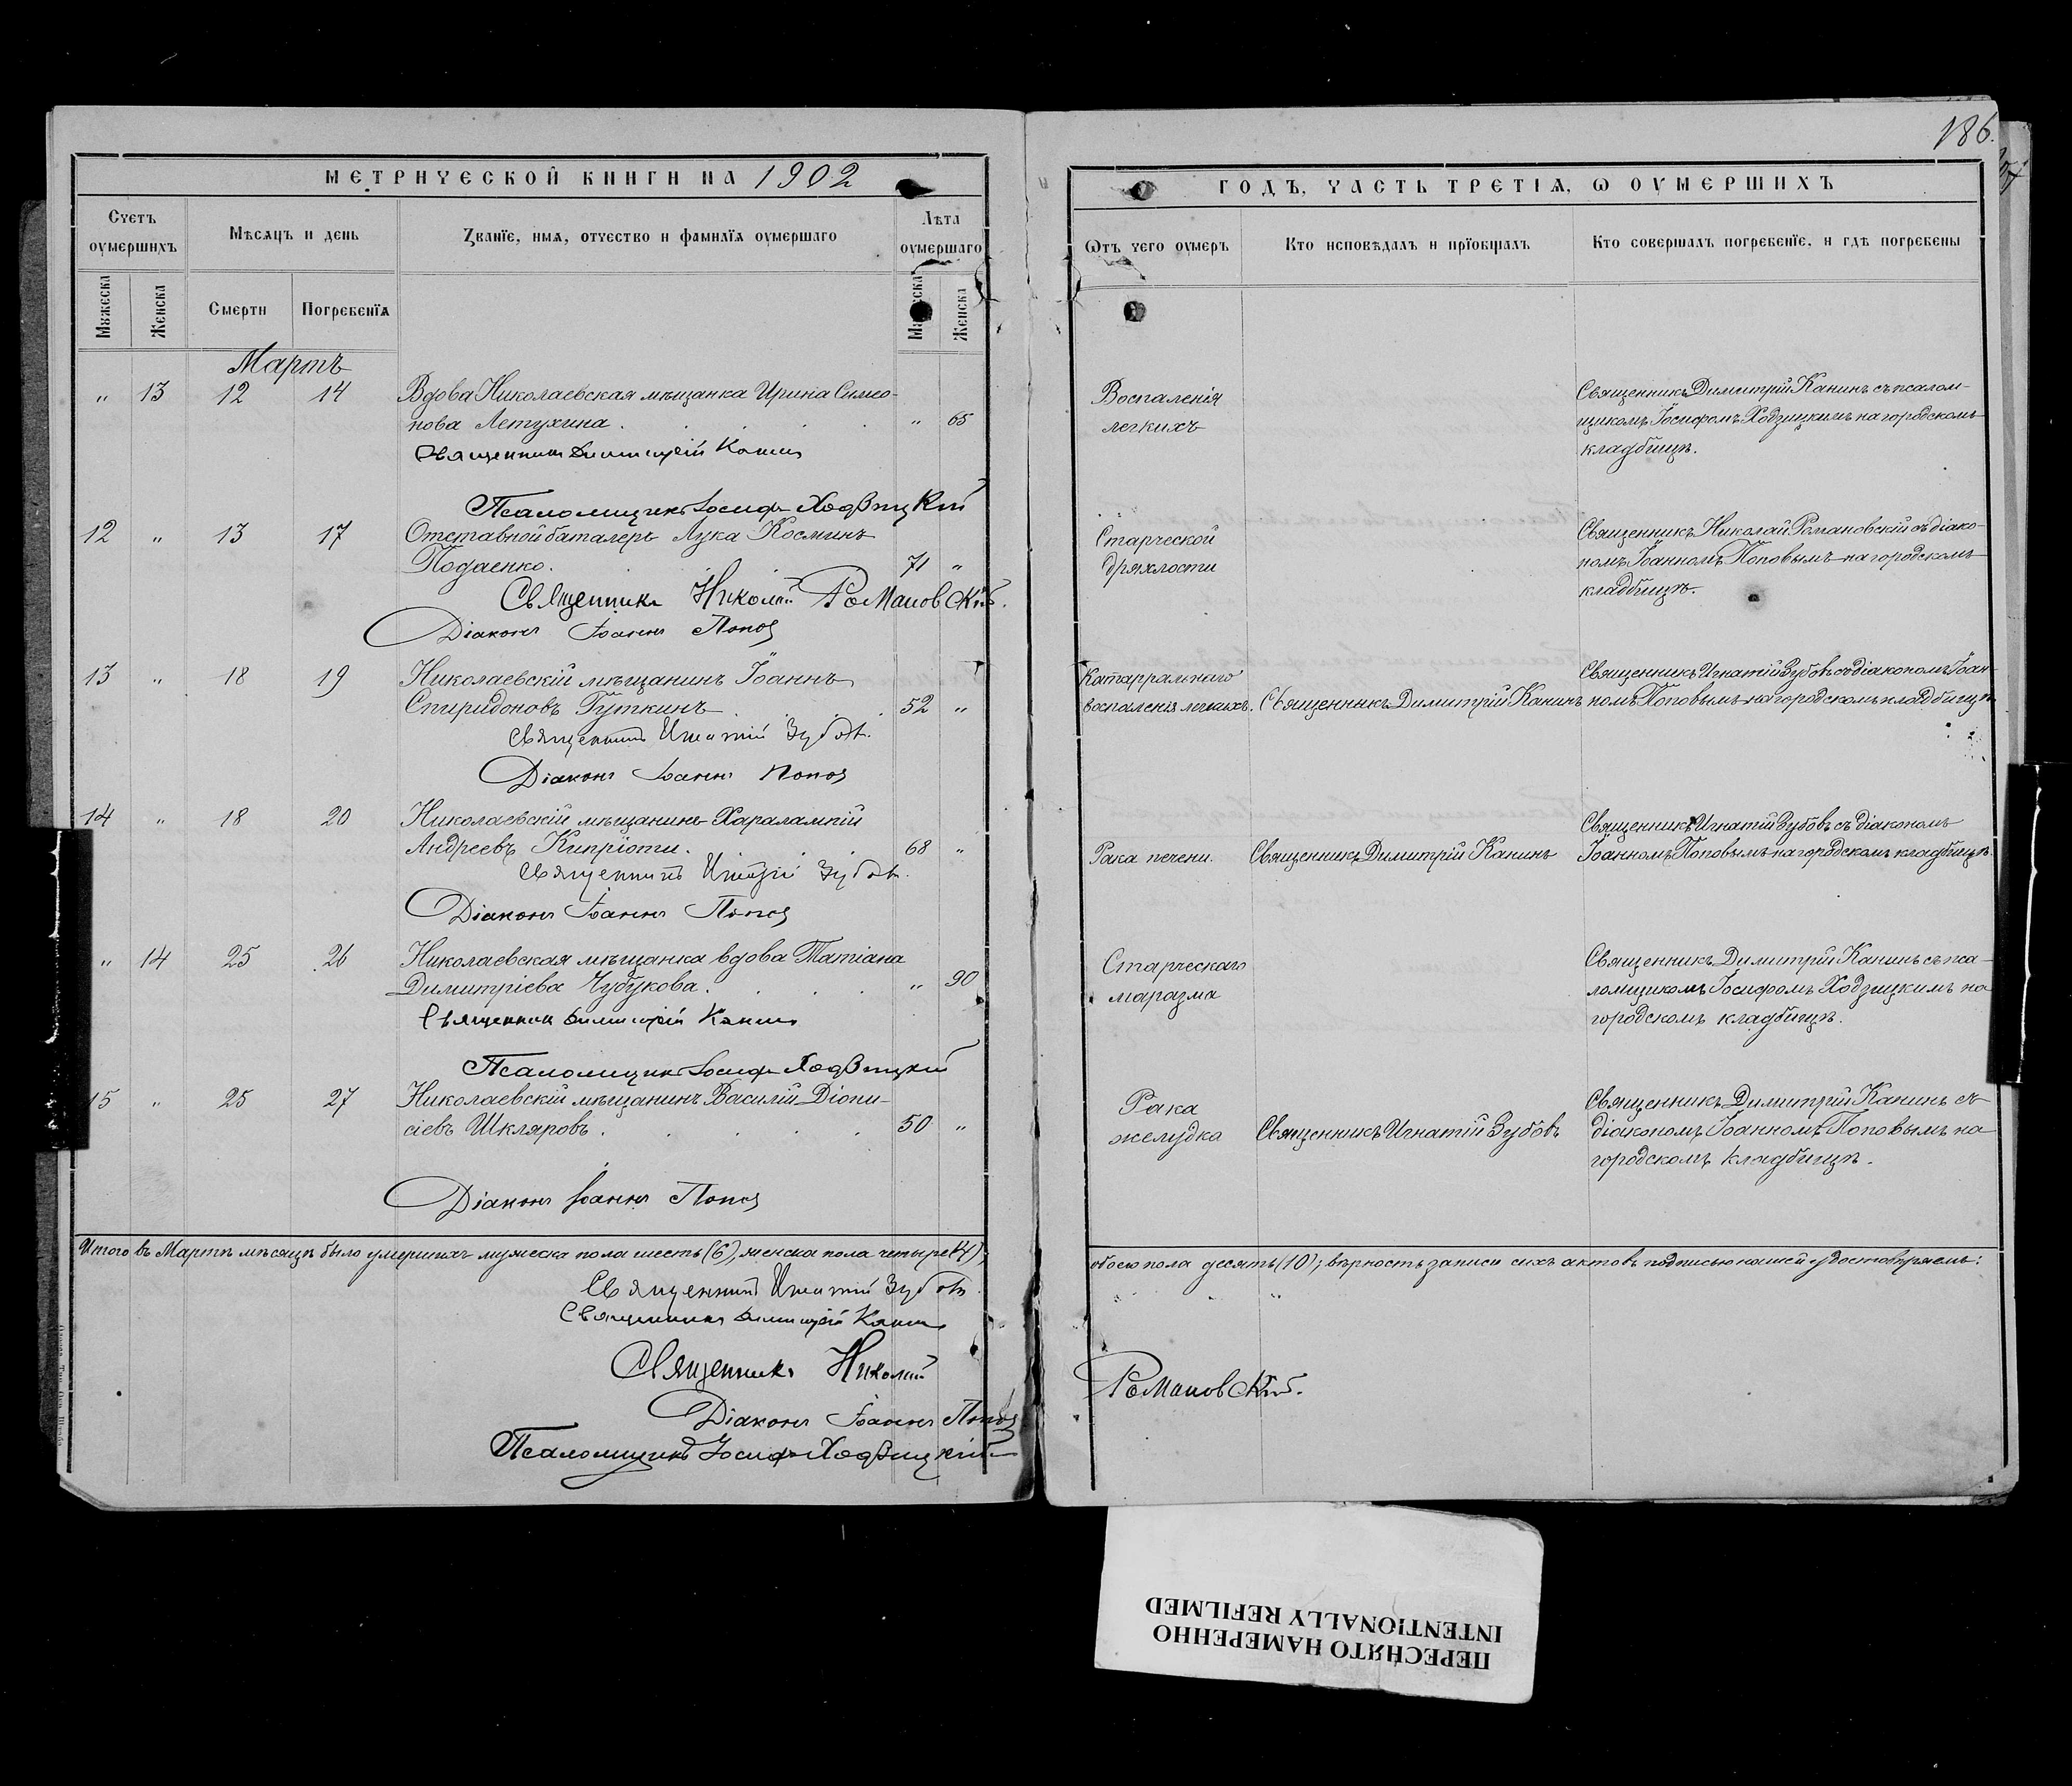 186.
МЕТРИЧЕСКОЙ КНИГИ НА 1902
ГОДЪ, ЧАСТЬ ТРЕТІѦ, Ѡ ОУМЕРШИХЪ
Счетъ оумершихъ
Мѣсѧцъ и день
Званїе, имѧ, отчество и фамилїѧ оумершаго
Лѣта оумершаго
Ѿтъ чего оумеръ
Кто исповѣдалъ и прїобщалъ
Кто совершалъ погребенїе, и гдѣ погребены
Мꙋжеска
Женска
Смерти
Погребенїѧ
Женска
Мартъ
„ 13 12 14 Вдова Николаевская мѣщанка Ирина Симео-
нова Летухина . „ 65
Воспаленія
легкихъ
Священникъ Димитрій Канинъ съ псалом-
щикомъ Іосифомъ Ходзицкимъ на городскомъ
кладбищѣ.
Священникъ Димитрій Канинъ
Псаломщикъ Іосифъ Ходзицкій
12 „ 13 17 Отставной баталеръ Лука Косминъ
Подаенко. 71 „
Старческой
дряхлости
Священникъ Николай Романовскій съ діако-
номъ Іоанномъ Поповымъ на городскомъ
кладбищѣ.
Священникъ Николай Романовскій.
Діаконъ Іоаннъ Поповъ
13 „ 18 19 Николаевскій мѣщанинъ Іоаннъ
Спиридоновъ Гуткинъ . 52 „
Катарральнаго
воспаленія легкихъ. Священникъ Димитрій Канинъ
Священникъ Игнатій Зубовъ съ діакономъ Іоан-
номъ Поповымъ на городскомъ кладбищѣ
Священникъ Игнатій Зубовъ.
Діаконъ Іоаннъ Поповъ
14 „ 18 20 Николаевскій мѣщанинъ Харалампій
Андреевъ Кипріоти. 68 „
Рака печени. Священникъ Димитрій Канинъ
Священникъ Игнатій Зубовъ съ діакономъ
Іоанномъ Поповымъ на городскомъ кладбищѣ.
Священникъ Игнатій Зубовъ.
Діаконъ Іоаннъ Поповъ
„ 14 25 26 Николаевская мѣщанка вдова Татіана
Димитріева Чубукова . „ 90
Старческаго
маразма
Священникъ Димитрій Канинъ съ пса-
ломщикомъ Іосифомъ Ходзицкимъ на
городскомъ кладбищѣ.
Священникъ Димитрій Канинъ
Псаломщикъ Іосифъ Ходзицкій
15 „ 25 27 Николаевскій мѣщанинъ Василій Діони-
сіевъ Шкляровъ . 50 „
Рака
желудка
Священникъ Игнатій Зубовъ
Священникъ Димитрій Канинъ съ
діакономъ Іоанномъ Поповымъ на
городскомъ кладбищѣ.
Діаконъ Іоаннъ Поповъ
Итого въ Мартѣ мѣсяцѣ было умершихъ мужеска пола шесть (6), женска пола четыре (4),
обоего пола десять (10); вѣрность записи сихъ актовъ подписью нашей удостовѣряемъ:
Священникъ Игнатій Зубовъ
Священникъ Димитрій Канинъ
Священникъ Николай
Романовскій.
Діаконъ Іоаннъ Поповъ
Псаломщикъ Іосифъ Ходзицкій
ПЕРЕСНЯТО НАМЕРЕННО
INTENTIONALLY REFILMED